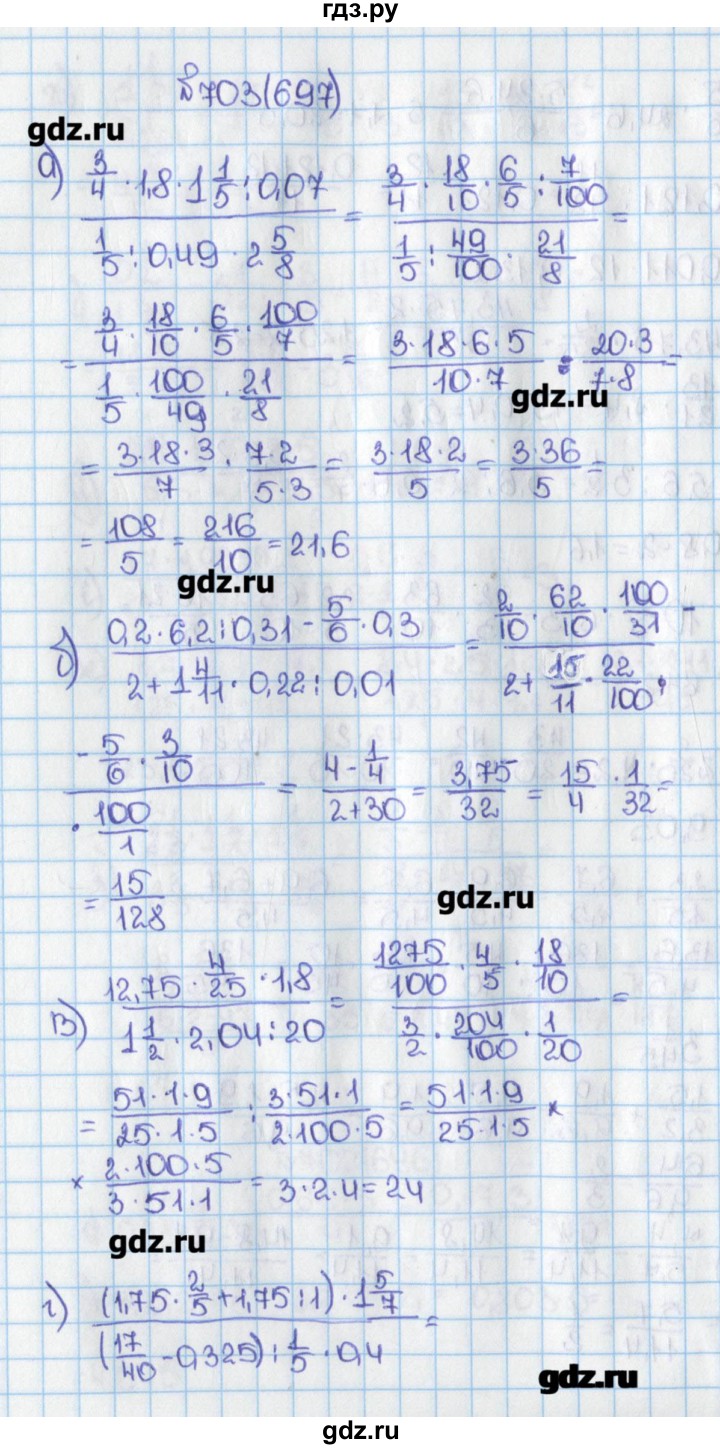 гдз.ру
№703(697)
gdz.ru
а) (3/4 · 1,8 · 1 1/5 : 0,07) / (1/5 : 0,49 · 2 5/8) = (3/4 · 18/10 · 6/5 : 7/100) / (1/5 : 49/100 · 21/8) =
= (3/4 · 18/10 · 6/5 · 100/7) / (1/5 · 100/49 · 21/8) = (3·18·6·5)/(10·7) : (20·3)/(7·8) =
gdz.ru
= (3·18·3)/7 · (7·2)/(5·3) = (3·18·2)/5 = (3·36)/5 =
= 108/5 = 216/10 = 21,6
gdz.ru
б) (0,2 · 6,2 : 0,31 - 5/6 · 0,3) / (2 + 1 4/11 · 0,22 : 0,01) = (2/10 · 62/10 · 100/31 - / (2 + 15/11 · 22/100 ·
(- 5/6 · 3/10) / (· 100/1) = (4 - 1/4) / (2+30) = 3,75/32 = 15/4 · 1/32 =
= 15/128
gdz.ru
в) (12,75 · 4/25 · 1,8) / (1 1/2 · 2,04 : 20) = (1275/100 · 4/5 · 18/10) / (3/2 · 204/100 · 1/20) =
= (51·1·9)/(25·1·5) : (3·51·1)/(2·100·5) = (51·1·9)/(25·1·5) ×
× (2·100·5)/(3·51·1) = 3·2·4 = 24
gdz.ru
г) ((1,75 · 2/5 + 1,75 : 1) · 1 5/7) / ((17/40 - 0,325) : 1/5 · 0,4) =
gdz.ru
gdz.ru